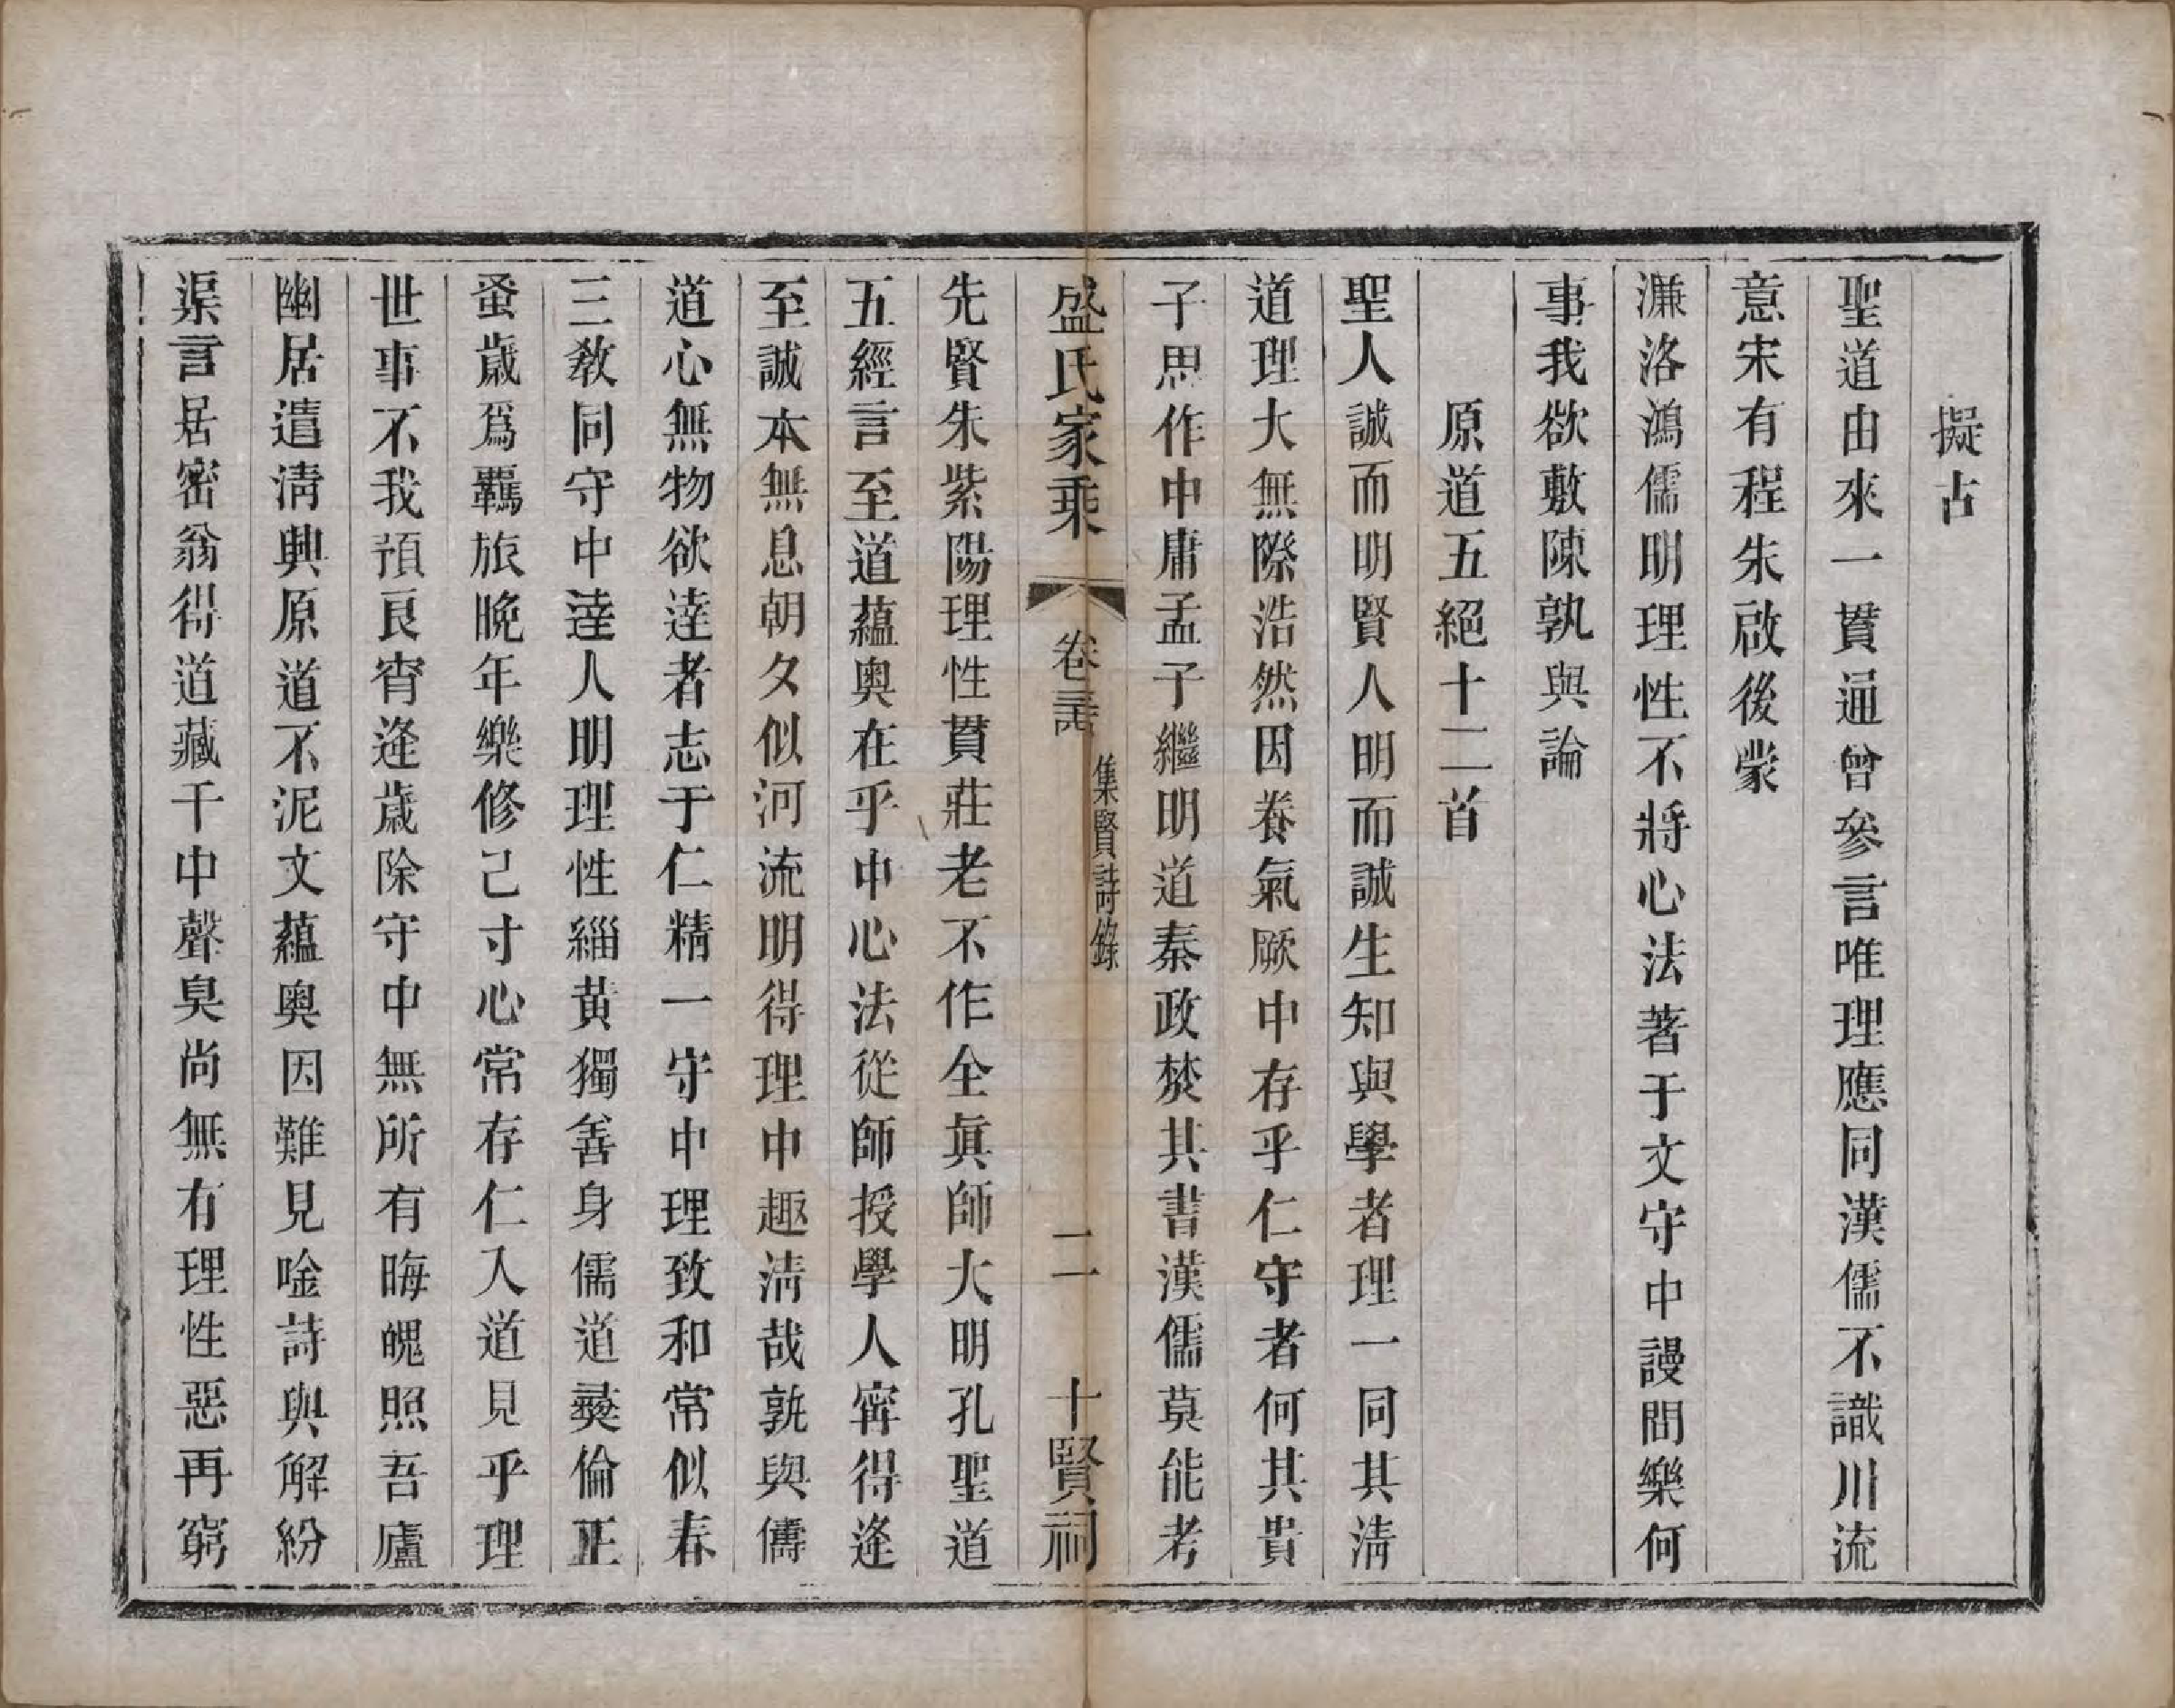 擬古
聖道由來一貫通曾參言唯理應同漢儒不識川流
意宋有程朱啟後蒙
濂洛鴻儒明理性不將心法著于文守中謾問樂何
事我欲敷陳孰與論
原道五絕十二首
聖人誠而明明賢人明而誠生知與學者理一同其淸
道理大無際浩然因養氣厥中存乎仁守者何其貴
子思作中庸孟子繼明道秦政焚其書漢儒莫能考
盛氏家乘 卷 集賢詩錄 二 十賢祠
先賢朱紫陽理性貫莊老不作全眞師大明孔聖道
五經言至道蘊奧在乎中心法從師授學人寗得逢
至誠本無息朝夕似河流明得理中趣淸哉孰與儔
道心無物欲達者志于仁精一守中理致和常似春
三敎同守中達人明理性緇黃獨善身儒道彝倫正
蚤歲爲羈旅晩年樂修己寸心常存仁入道見乎理
世事不我預良宵逢歲除守中無所有晦魄照吾廬
幽居遣淸興原道不泥文蘊奧因難見唫詩與解紛
渠言居密翁得道藏干中聲臭尚無有理性惡再窮